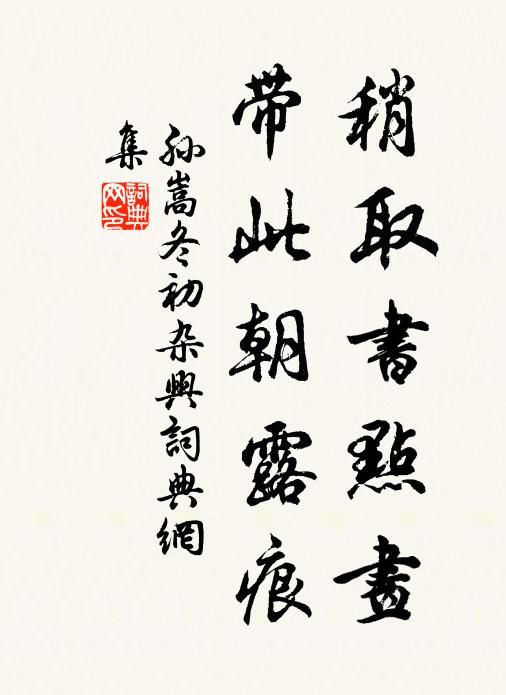 稍取書點畫
帶此朝露痕
孫嵩冬初杂興詞典網
集
詞典
网印